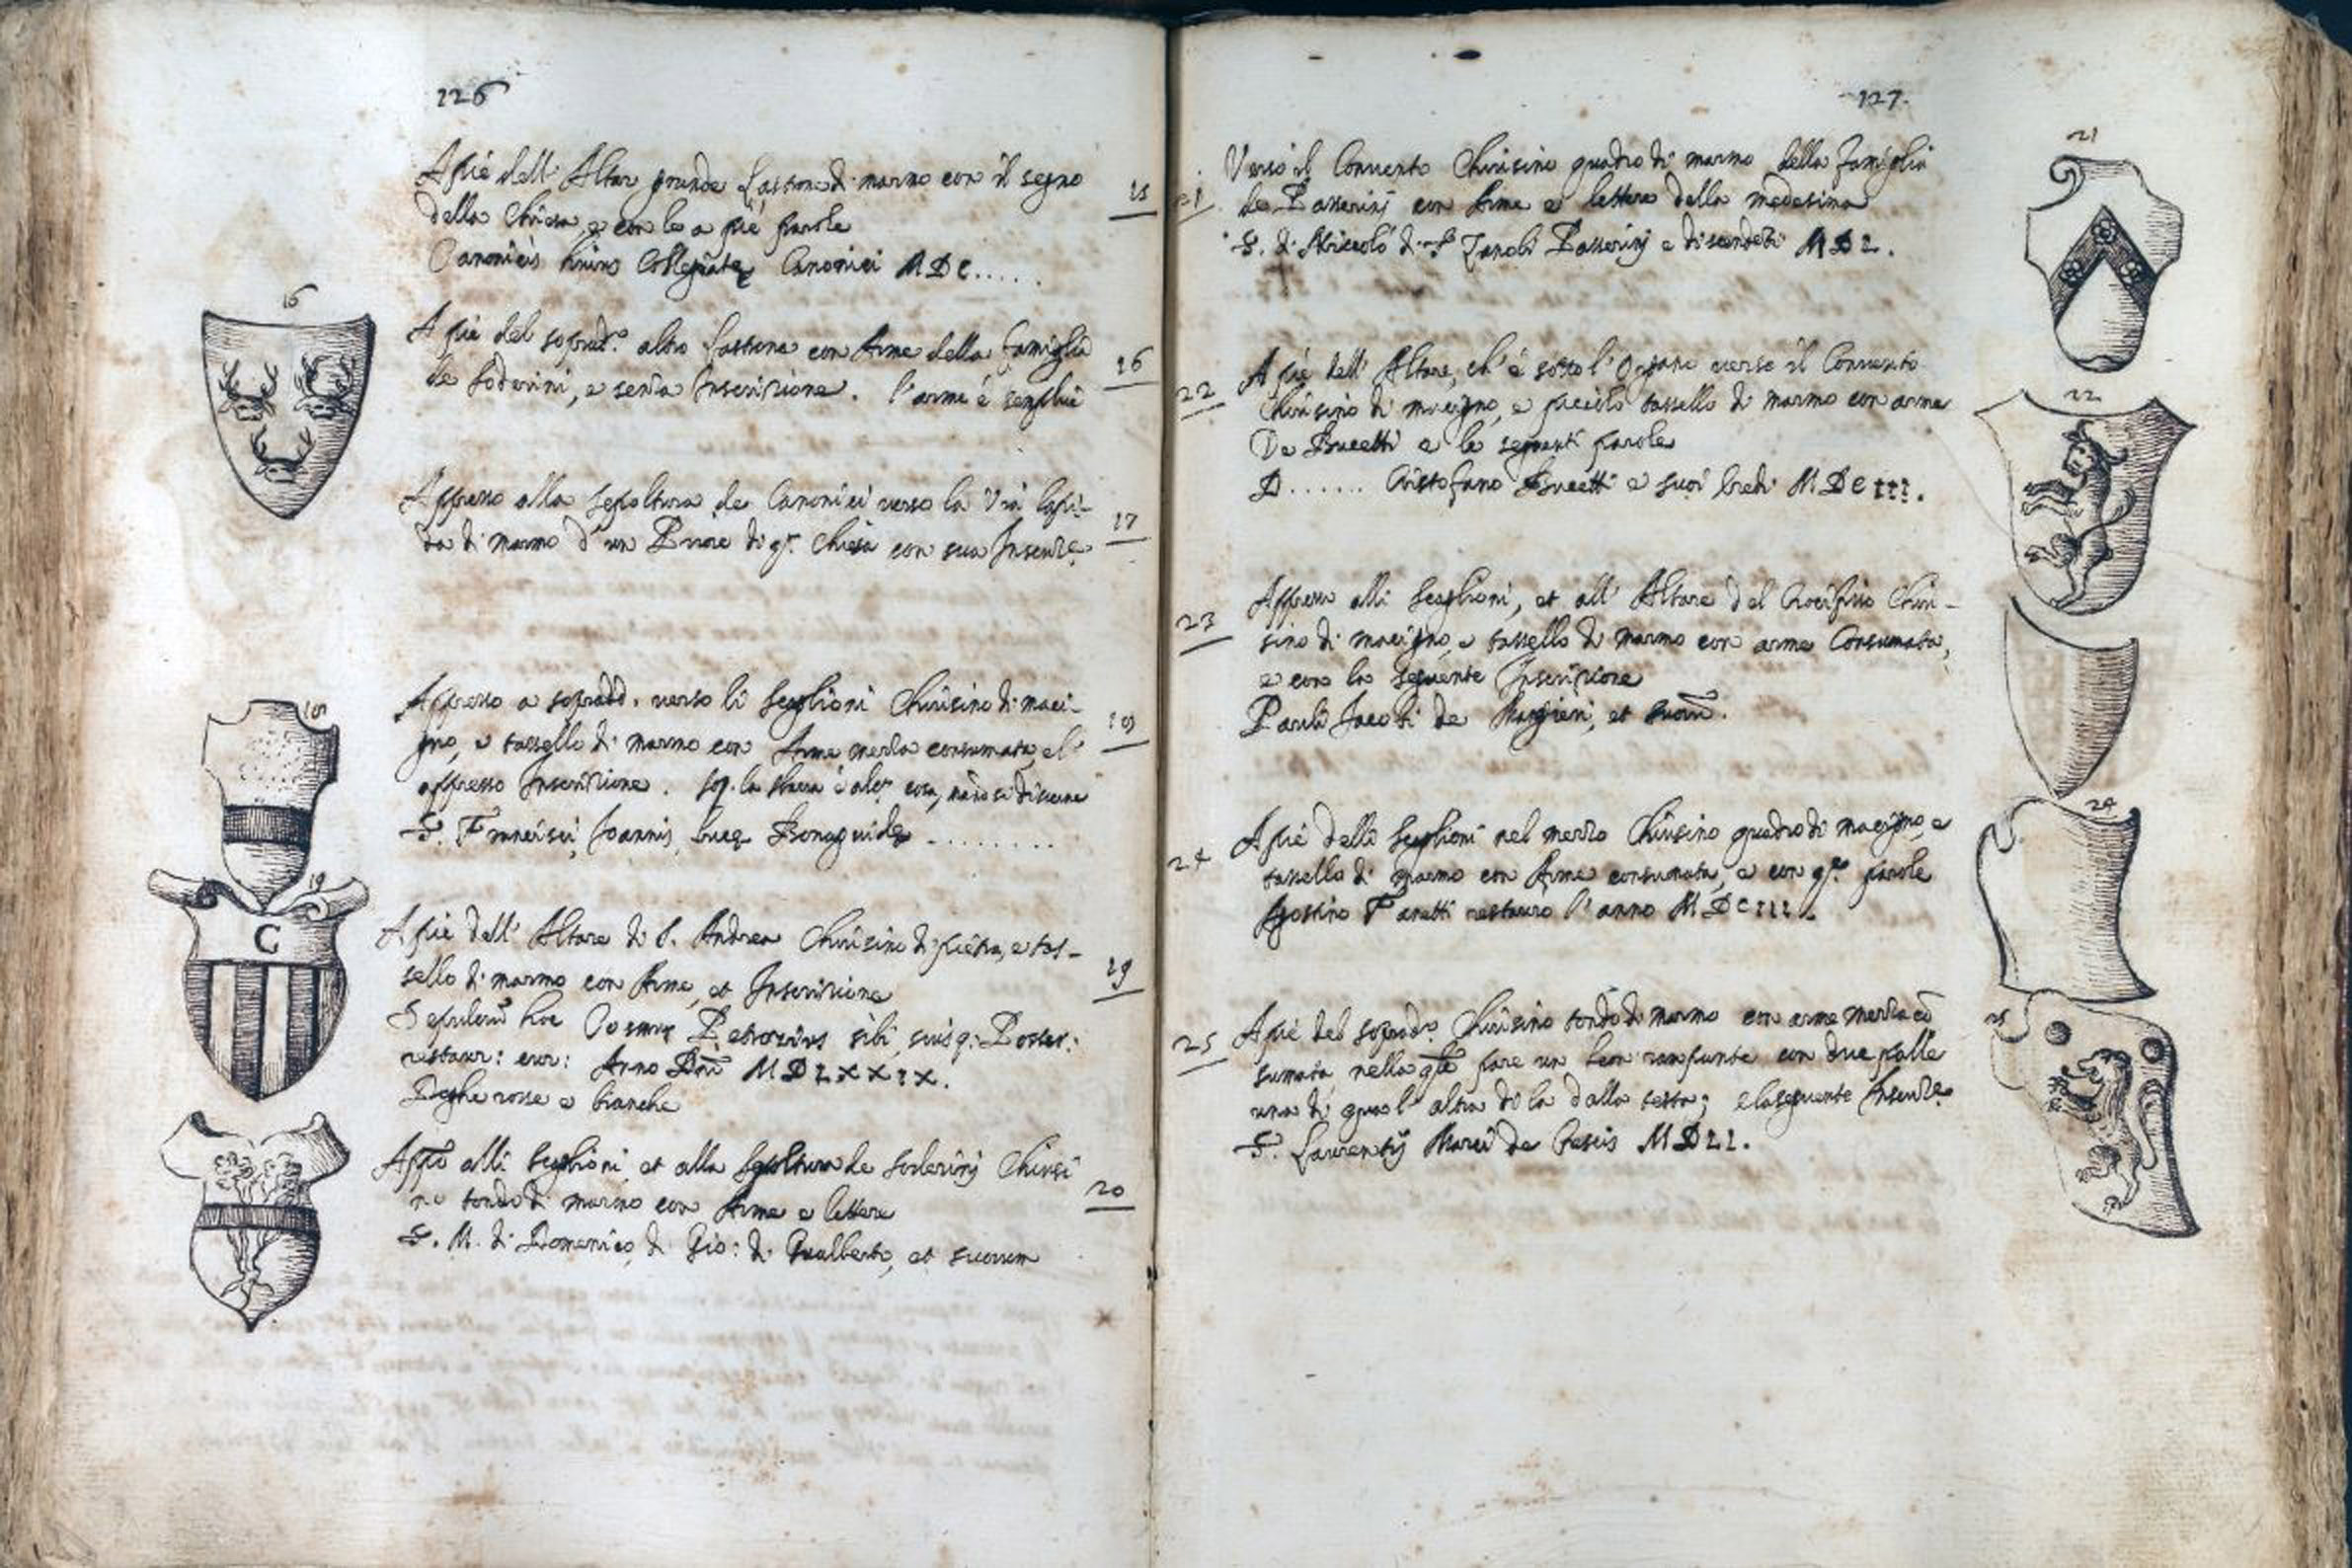 126
A piè dell' Altar grande Lastrone di marmo con il segno
della Chiesa, e con le a piè parole
Canonicis huius Collegiatę Canonici MDC.....
15
16
A piè del sopradº. altro Lastrone con Arme della famiglia
de Soderini, e senza Inscrizione. l'arme è semplice
16
Appresso alla sepoltura de Canonici verso la Via lapi-
da di marmo d'un Priore di qª. Chiesa con sua Inscriz.
17
18
Appresso a sopradd. verso li scaglioni Chiusino di maci-
gno, e tassello di marmo con Arme mezza consumata, e l'
appresso Inscrizione. sop. la sbarra è alcª. cosa, mà nò si discerne
S. Francisci, Joannis, Bonaguidę ........
18
19
C
A piè dell' Altare di S. Andrea Chiusino di pietra, e tas-
sello di marmo con Arme, et Inscrizione
Sepulcrū hoc Cosmus Petrozius sibi, suisq: Poster:
restaur: cur: Anno Dnī MDLXXIX.
Doghe rosse e bianche
19
App° alli scaglioni, et alla sepoltura de Soderinj Chiusi
no tondo di marmo con Arme e lettere
S. M. di Domenico, di Gio: di Gualberto, et suorum
20
127.
21
Verso il Convento Chiusino quadro di marmo della famiglia
de Passerinj con Arme e lettere della medesima
S. di Niccolò di S Zanobi Passerinj e discendēti MDL.
21
22
A piè dell' Altare, ch' è sotto l'Organo verso il Convento
Chiusino di macigno, e piccolo tassello di marmo con arme
De Bucetti e le seguenti parole
D...... Cristofano Bucetti e suoi heredi MDCIII.
22
23
Appresso alli scaglioni, et all' Altare del Crocifisso Chiu-
sino di macigno, e tassello di marmo con arme Consumata,
e con la seguente Inscrizione
Pauli Jacobi de et Suorū.
24
A piè delli scaglioni nel mezzo Chiusino quadro di macigno e
tassello di marmo con Arme consumata, e con qste. parole
Agostino Fanetti restauro l'anno MDCIII.
24
25
A piè del sopradº. Chiusino tondo di marmo con arme mezza cō
sumata nella qle pare un leon rampante con due palle
una di qua e l'altra di la dalla testa; e la seguente Inscriz.
S. Laurentij Marci de Cescis MDLI.
25